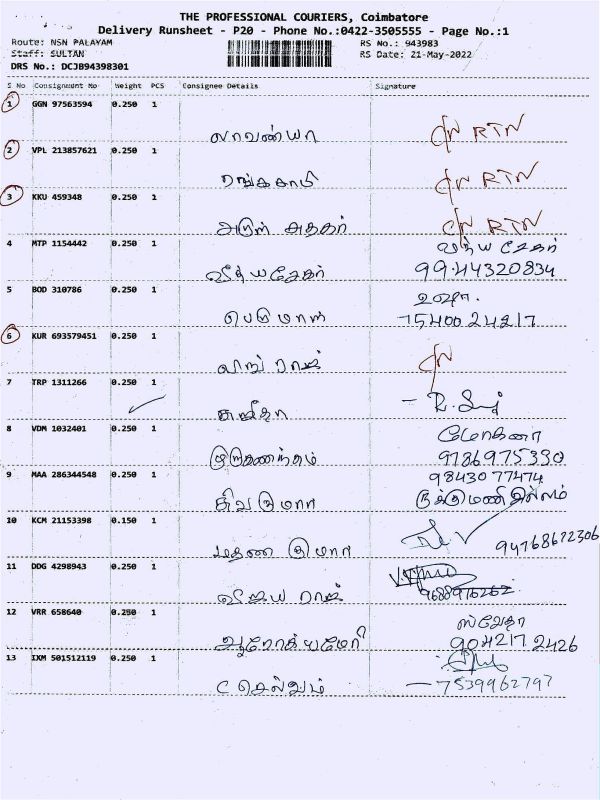 THE PROFESSIONAL COURIERS, Coimbatore
Delivery Runsheet - P20 - Phone No.:0422-3505555 - Page No.:1
Route: NSN PALAYAM RS No.: 943983
Staff: SULTAN RS Date: 21-May-2022
DRS No.: DCJB94398301
S No Consignment No Weight PCS Consignee Details Signature
1 GGN 97563594 0.250 1
லாவண்யா RTN
2 VPL 213857621 0.250 1
ரங்கசாமி RTN
3 KKU 459348 0.250 1
அருள் RTN
4 MTP 1154442 0.250 1
வித்யசேகர் 9944320834
5 BOD 310786 0.250 1 உஷா.
பெருமாள் 7540024217
6 KUR 693579451 0.250 1
7 TRP 1311266 0.250 1
சுஜீதா
8 VDM 1032401 0.250 1 மோகனா
9786975330
9 MAA 286344548 0.250 1 9843077474
சிவகுமார் ருக்குமணி இல்லம்
10 KCM 21153398 0.150 1
மதன குமார் 94768672306
11 DDG 4298943 0.250 1
விஜய ராஜ் 9688976262
12 VRR 658640 0.250 1 ஸ்வேதா
ஆரோக்யமேரி 9042172426
13 IXM 501512119 0.250 1
C செல்வம் 7539962797